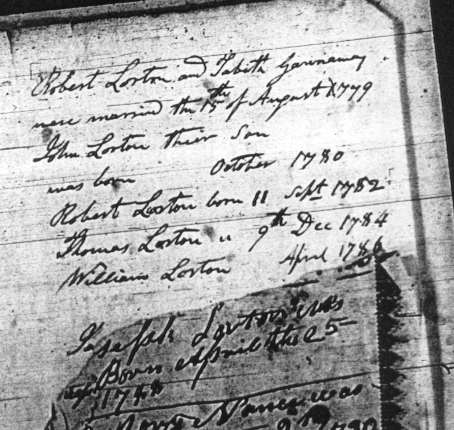 Robert Lorton and Tabith Gannaway
were married the 15th of August 1779
John Lorton their Son
was born October 1780
Robert Lorton born 11 Sept 1782
Thomas Lorton " 9th Dec 1784
William Lorton April 1786
Joseph Lorton was
Born April the 25
1748
Nancy was